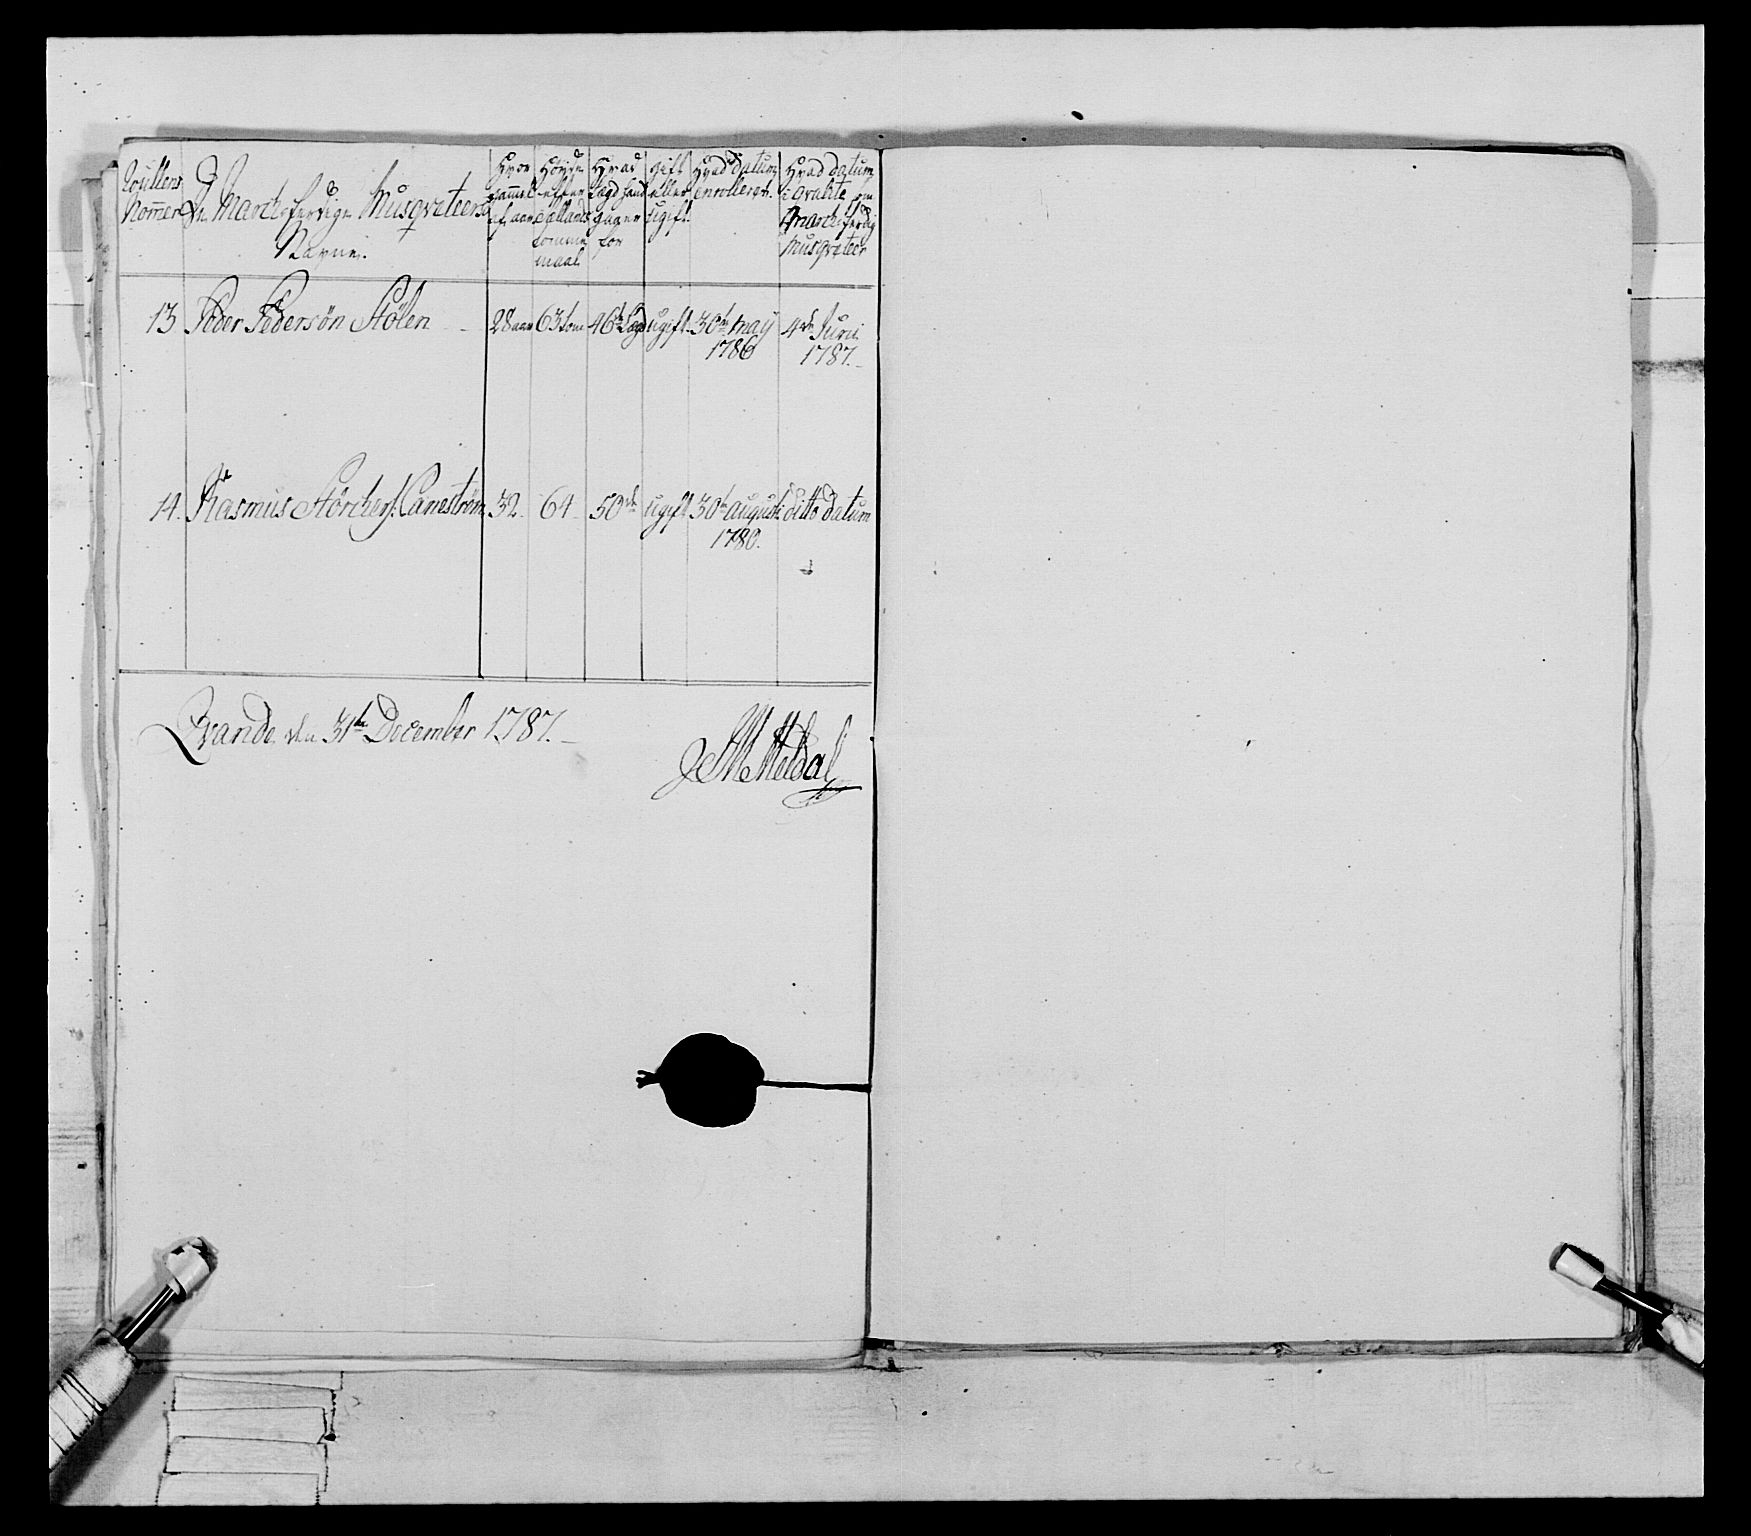 Roullens Nommer
De Marchferdige Musqveteers Navne.
Hvor gammel af aar
Høyde efter Siællands tomme maal
Hvad Lægd hand gager for
gift eller ugift.
Hvad datum enrolleret.
Hvad datum i qvalite som March ferdig Musqveteer
13 Peder Pedersøn Stölen 28 aar 63 tom 46de Lægd ugift. 30te may 1786 4de Juni 1787.
14. Rasmus Størchers. Lanestrøm 32. 64 50de ugift 30te augusti 1780. ditto datum
Evande den 31te December 1787.
Meldal